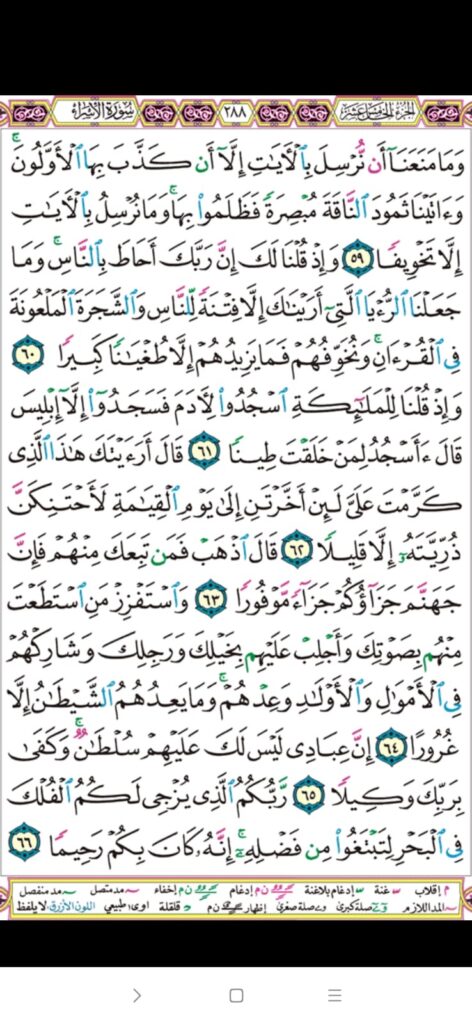 سُورَةُ الإِسْرَاءِ ٢٨٨ الجُزْءُ الخَامِسَ عَشَرَ
وَمَا مَنَعَنَآ أَن نُّرْسِلَ بِٱلْـَٔايَٰتِ إِلَّآ أَن كَذَّبَ بِهَا ٱلْأَوَّلُونَۚ
وَءَاتَيْنَا ثَمُودَ ٱلنَّاقَةَ مُبْصِرَةً فَظَلَمُوا۟ بِهَاۚ وَمَا نُرْسِلُ بِٱلْـَٔايَٰتِ
إِلَّا تَخْوِيفًا ٥٩ وَإِذْ قُلْنَا لَكَ إِنَّ رَبَّكَ أَحَاطَ بِٱلنَّاسِۚ وَمَا
جَعَلْنَا ٱلرُّءْيَا ٱلَّتِىٓ أَرَيْنَٰكَ إِلَّا فِتْنَةً لِّلنَّاسِ وَٱلشَّجَرَةَ ٱلْمَلْعُونَةَ
فِى ٱلْقُرْءَانِۚ وَنُخَوِّفُهُمْ فَمَا يَزِيدُهُمْ إِلَّا طُغْيَٰنًا كَبِيرًا ٦٠
وَإِذْ قُلْنَا لِلْمَلَٰٓئِكَةِ ٱسْجُدُوا۟ لِـَٔادَمَ فَسَجَدُوٓا۟ إِلَّآ إِبْلِيسَ
قَالَ ءَأَسْجُدُ لِمَنْ خَلَقْتَ طِينًا ٦١ قَالَ أَرَءَيْتَكَ هَٰذَا ٱلَّذِى
كَرَّمْتَ عَلَىَّ لَئِنْ أَخَّرْتَنِ إِلَىٰ يَوْمِ ٱلْقِيَٰمَةِ لَأَحْتَنِكَنَّ
ذُرِّيَّتَهُۥٓ إِلَّا قَلِيلًا ٦٢ قَالَ ٱذْهَبْ فَمَن تَبِعَكَ مِنْهُمْ فَإِنَّ
جَهَنَّمَ جَزَآؤُكُمْ جَزَآءً مَّوْفُورًا ٦٣ وَٱسْتَفْزِزْ مَنِ ٱسْتَطَعْتَ
مِنْهُم بِصَوْتِكَ وَأَجْلِبْ عَلَيْهِم بِخَيْلِكَ وَرَجِلِكَ وَشَارِكْهُمْ
فِى ٱلْأَمْوَٰلِ وَٱلْأَوْلَٰدِ وَعِدْهُمْۚ وَمَا يَعِدُهُمُ ٱلشَّيْطَٰنُ إِلَّا
غُرُورًا ٦٤ إِنَّ عِبَادِى لَيْسَ لَكَ عَلَيْهِمْ سُلْطَٰنٌۚ وَكَفَىٰ
بِرَبِّكَ وَكِيلًا ٦٥ رَّبُّكُمُ ٱلَّذِى يُزْجِى لَكُمُ ٱلْفُلْكَ
فِى ٱلْبَحْرِ لِتَبْتَغُوا۟ مِن فَضْلِهِۦٓۚ إِنَّهُۥ كَانَ بِكُمْ رَحِيمًا ٦٦
م إقلاب غنة إدغام بلاغنة ن م إدغام ن م إخفاء مد متصل مد منفصل
المد اللازم صلة كبرى صلة صغرى إظهار ن م قلقلة اوى: طبيعي اللون الأزرق: لا يلفظ